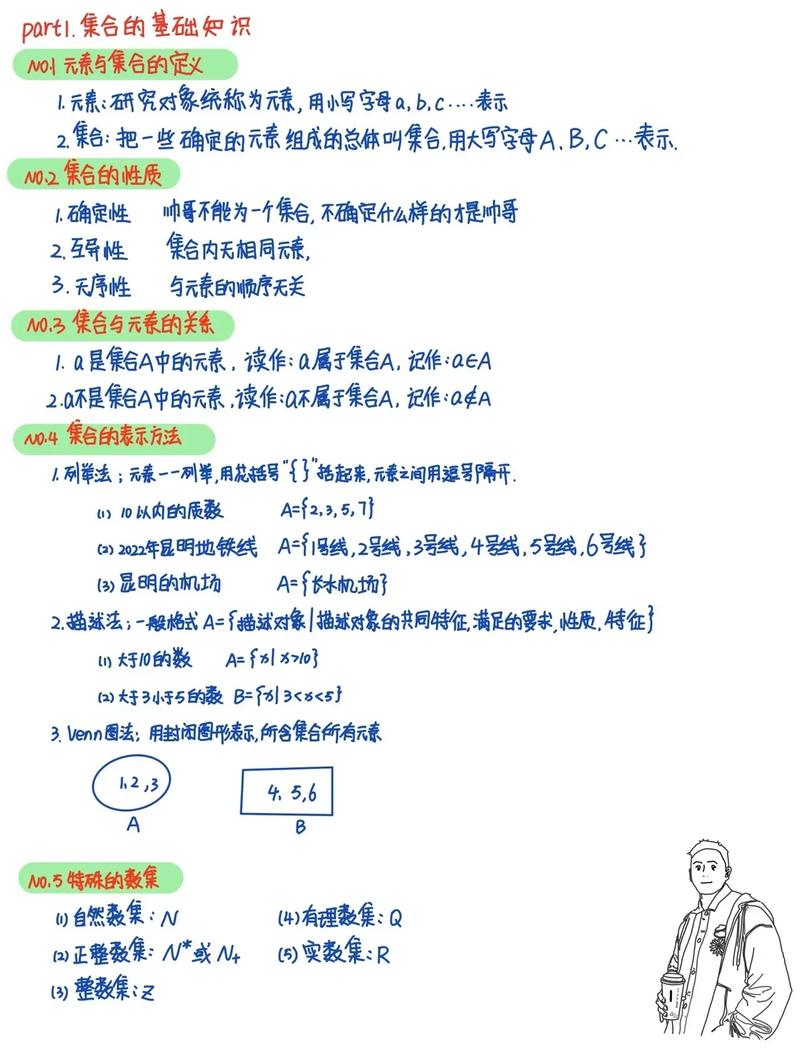 part1.集合的基础知识
NO.1 元素与集合的定义
1.元素:研究对象统称为元素,用小写字母a,b,c....表示
2.集合:把一些确定的元素组成的总体叫集合,用大写字母A,B,C…表示.
NO.2 集合的性质
1.确定性 帅哥不能为一个集合,不确定什么样的才是帅哥
2.互异性 集合内无相同元素,
3.无序性 与元素的顺序无关
NO.3 集合与元素的关系
1. a是集合A中的元素,读作:a属于集合A,记作:a∈A
2.a不是集合A中的元素,读作:a不属于集合A,记作:a∉A
NO.4 集合的表示方法
1.列举法;元素一一列举,用花括号"{ }"括起来,元素之间用逗号隔开.
(1) 10以内的质数 A={2,3,5,7}
(2) 2022年昆明地铁线 A={1号线,2号线,3号线,4号线,5号线,6号线}
(3) 昆明的机场 A={长水机场}
2.描述法;一般格式A={描述对象|描述对象的共同特征,满足的要求,性质,特征}
(1) 大于10的数 A={x|x>10}
(2) 大于3小于5的数 B={x|3<x<5}
3. Venn图法;用封闭图形表示,所含集合所有元素
1,2,3 4,5,6
A B
NO.5 特殊的数集
(1) 自然数集:N (4)有理数集:Q
(2) 正整数集:N*或N+ (5)实数集:R
(3) 整数集:Z